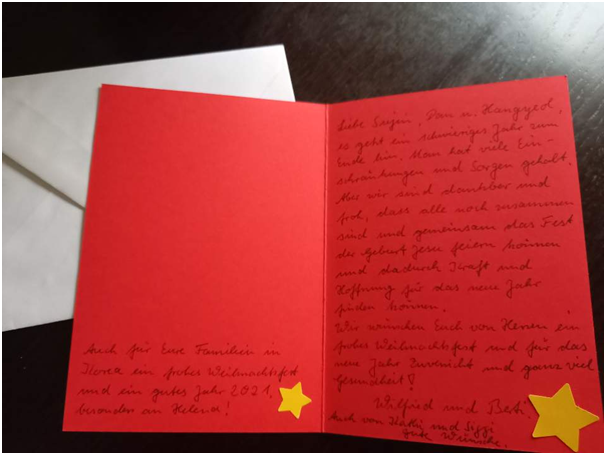 Auch für Eure Familien in
Korea ein frohes Weihnachtsfest
und ein gutes Jahr 2021,
besonders an Helena!
Liebe Sujin, Dan u. Hangyeol,
es geht ein schwieriges Jahr zum
Ende hin. Man hat viele Ein-
schränkungen und Sorgen gehabt.
Aber wir sind dankbar und
froh, dass alle noch zusammen
sind und gemeinsam das Fest
der Geburt Jesu feiern können
und dadurch Kraft und
Hoffnung für das neue Jahr
finden können.
Wir wünschen Euch von Herzen ein
frohes Weihnachtsfest und für das
neue Jahr Zuversicht und ganz viel
Gesundheit!
Wilfried und Beti
Auch von Kathi und Siggi
gute Wünsche.